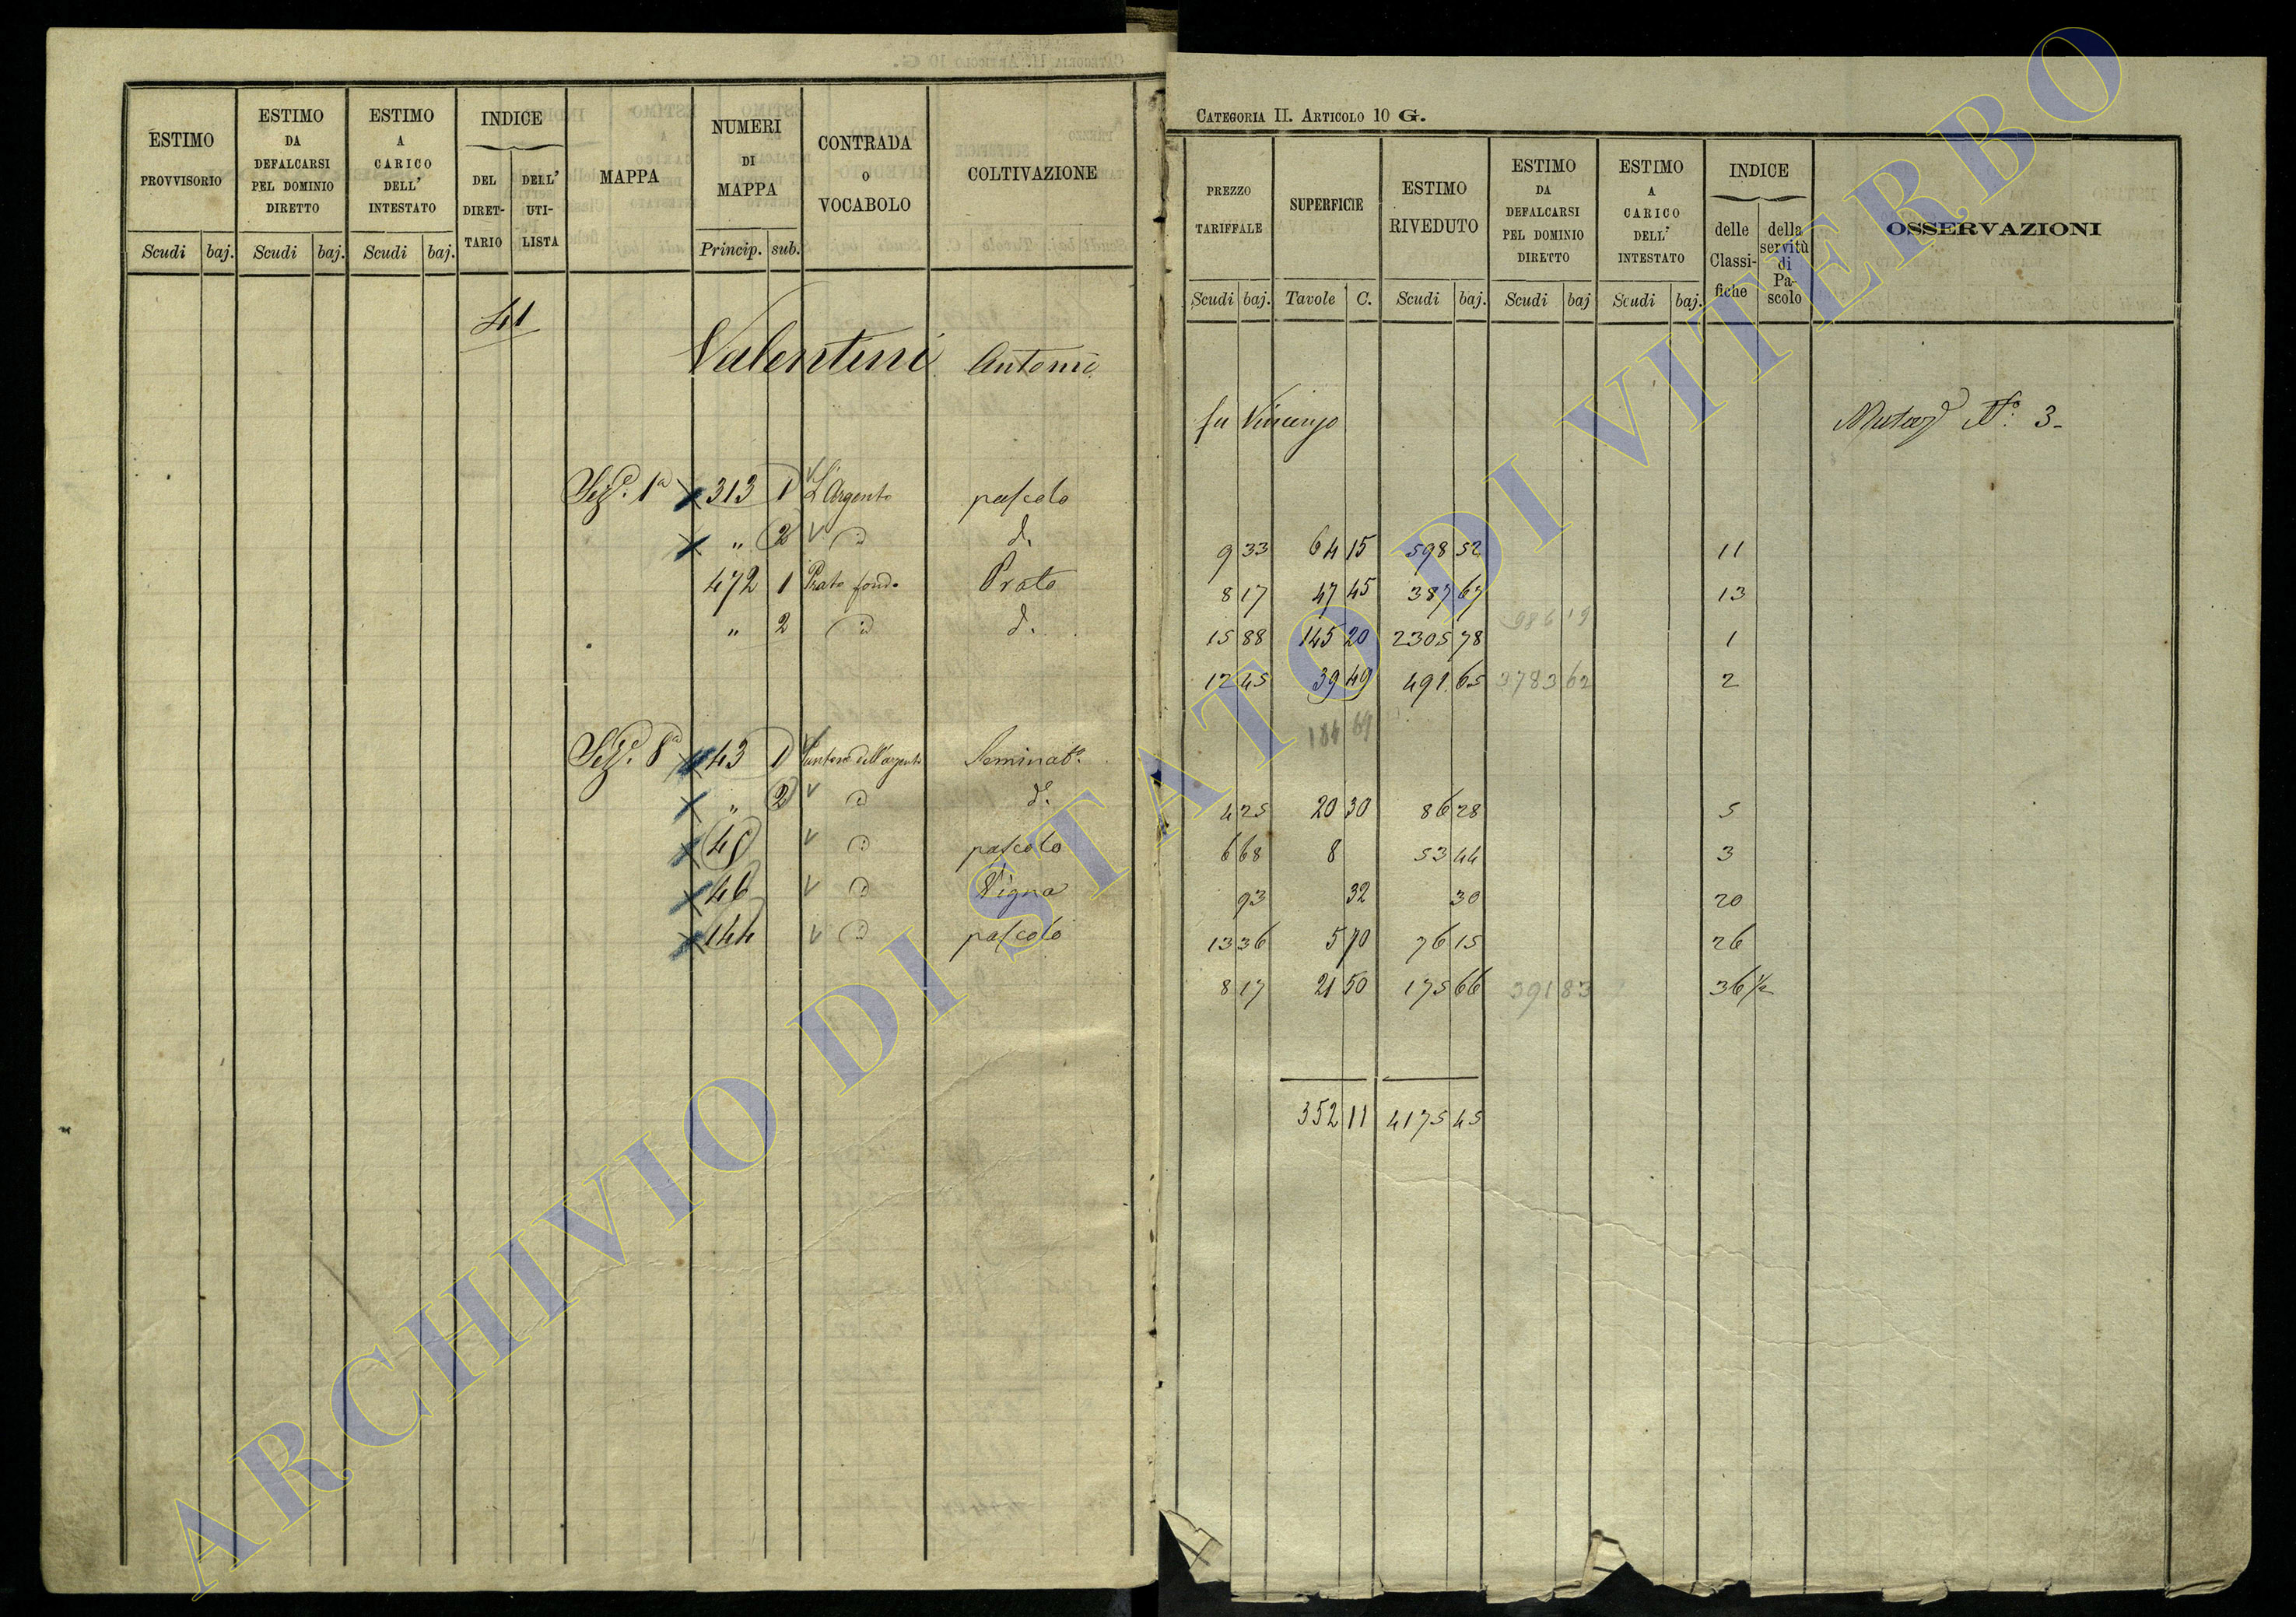 ESTIMO PROVVISORIO Scudi baj.
ESTIMO DA DEFALCARSI PEL DOMINIO DIRETTO Scudi baj.
ESTIMO A CARICO DELL' INTESTATO Scudi baj.
INDICE DEL DIRET-TARIO DELL' UTI-LISTA
MAPPA
NUMERI DI MAPPA Princip. sub.
CONTRADA O VOCABOLO
COLTIVAZIONE
41
Valentini Antonio
Sez.e 1a 313 1 L'Argento pascolo
" 2 d. d.
472 1 Prato fondo Prato
" 2 d. d.
Sez.e 8a 43 1 dell'argento Seminat.o
" 2 d. d.o
45 d. pascolo
46 d. Vigna
144 d. pascolo
CATEGORIA II. ARTICOLO 10 G.
PREZZO TARIFFALE Scudi baj.
SUPERFICIE Tavole C.
ESTIMO RIVEDUTO Scudi baj.
ESTIMO DA DEFALCARSI PEL DOMINIO DIRETTO Scudi baj
ESTIMO A CARICO DELL' INTESTATO Scudi baj.
INDICE delle Classi-fiche della servitù di Pa-scolo
OSSERVAZIONI
fu Vincenzo N.o 3
9 33 64 15 598 52 11
8 17 47 45 387 67 13
986 19
15 88 145 20 2305 78 1
12 45 39 49 491 65 3783 62 2
184 69
4 25 20 30 86 28 5
6 68 8 53 44 3
93 32 30 20
13 36 5 70 76 15 26
8 17 21 50 175 66 391 83 36 1/2
352 11 4175 45
ARCHIVIO DI STATO DI VITERBO